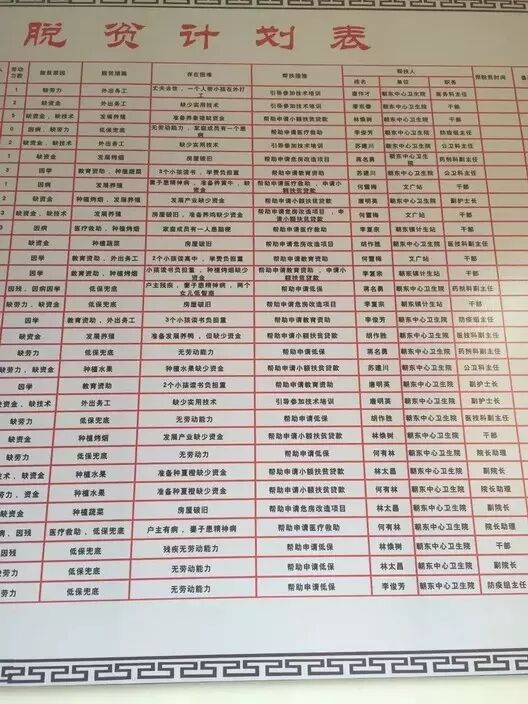 脱贫计划表
劳动力数 致贫原因 脱贫措施 存在困难 帮扶措施 帮扶人 预脱贫时间
姓名 单位 职务
1 缺劳力 外出务工 丈夫去世,一个人带小孩在外打工 引导参加技术培训 唐作才 朝东中心卫生院 医务科主任
2 缺资金 外出务工 缺少实用技术 引导参加技术培训 廖东春 朝东中心卫生院 干部
5 缺资金、缺技术 发展养殖 准备养象猪缺资金 帮助申请小额扶贫贷款 胡作胜 朝东中心卫生院 干部
0 因病、缺劳力 低保兜底 无劳动能力,家庭成员有一个患病 帮助申请医疗救助 李俊芳 朝东中心卫生院 防疫组主任
2 缺资金 外出务工 缺少实用技术 引导参加技术培训 苏建川 朝东中心卫生院 公卫科主任
1 缺资金 发展烤烟 房屋破旧 帮助申请小额扶贫贷款 蒋名勇 朝东中心卫生院 药剂科副主任
3 因学 教育资助、种植蔬菜 3个小孩读书,学费负担重 帮助申请教育资助 苏建川 朝东中心卫生院 公卫科主任
1 因病 发展养殖 妻子患精神病,准备养黄牛,缺资金 帮助申请医疗救助、申请小额扶贫贷款 何雪梅 文广站 干部
2 缺资金 发展养殖 发展产业缺少资金 帮助申请小额扶贫贷款 唐明英 朝东中心卫生院 副护士长
3 缺资金、缺技术 发展养殖 房屋破旧,准备养鸡缺少资金 帮助申请危房改造项目,申请小额扶贫贷款 何雪梅 文广站 干部
因病 医疗救助、种植烤烟 家庭成员有一人患脑梗 帮助申请医疗救助 李复宗 朝东镇计生站 干部
缺资金 种植蔬菜 房屋破旧 帮助申请危房改造项目 胡作胜 朝东中心卫生院 医技科副主任
因学 教育资助、外出务工 2个小孩读高中,学费负担重 帮助申请教育资助 何雪梅 文广站 干部
因学 教育资助、种植烤烟 小孩读书负担重,种植烤烟缺少资金 帮助申请教育资助、申请小额扶贫贷款 李复宗 朝东镇计生站 干部
因残、因病因学 低保兜底 户主残疾、妻子患精神病、两个女儿低智商 帮助申请低保 蒋名勇 朝东中心卫生院 药剂科主任
缺劳力、缺资金 低保兜底 房屋破旧 帮助申请危房改造项目 李复宗 朝东镇计生站 干部
因学 教育资助、外出务工 3个小孩读书负担重 帮助申请教育资助 李俊芳 朝东中心卫生院 防疫组主任
缺资金 发展养殖 准备发展养鸭,但缺少资金 帮助申请小额扶贫贷款 胡作胜 朝东中心卫生院 医技科副主任
缺劳力 低保兜底 无劳动能力 帮助申请低保 蒋名勇 朝东中心卫生院 药剂科副主任
缺劳力、缺资金 种植水果 种植水果缺少资金 帮助申请小额扶贫贷款 苏建川 朝东中心卫生院 公卫科主任
因学 教育资助 2个小孩读书负担重 帮助申请教育资助 唐明英 朝东中心卫生院 副护士长
缺资金、缺技术 外出务工 缺少实用技术 引导参加技术培训 唐明英 朝东中心卫生院 副护士长
缺劳力 低保兜底 无劳动能力 帮助申请低保 胡作胜 朝东中心卫生院 医技科副主任
缺资金 种植烤烟 发展产业缺少资金 帮助申请小额扶贫贷款 林焕树 朝东中心卫生院 干部
缺劳力 低保兜底 无劳动能力 帮助申请低保 何有林 朝东中心卫生院 院长助理
技术、缺资金 种植水果 准备种夏橙缺少资金 帮助申请小额扶贫贷款 林太昌 朝东中心卫生院 副院长
劳力、资金 种植水果 准备种夏橙缺少资金 帮助申请小额扶贫贷款 何有林 朝东中心卫生院 院长助理
缺资金 种植蔬菜 房屋破旧 帮助申请危房改造项目 林太昌 朝东中心卫生院 副院长
因病、因残 医疗救助、低保兜底 户主有病,妻子患精神病 帮助申请医疗救助 何有林 朝东中心卫生院 院长助理
因残 低保兜底 残疾无劳动能力 帮助申请低保 林焕树 朝东中心卫生院 干部
缺劳力 低保兜底 无劳动能力 帮助申请低保 林太昌 朝东中心卫生院 副院长
缺劳力 低保兜底 无劳动能力 帮助申请低保 李俊芳 朝东中心卫生院 防疫组主任